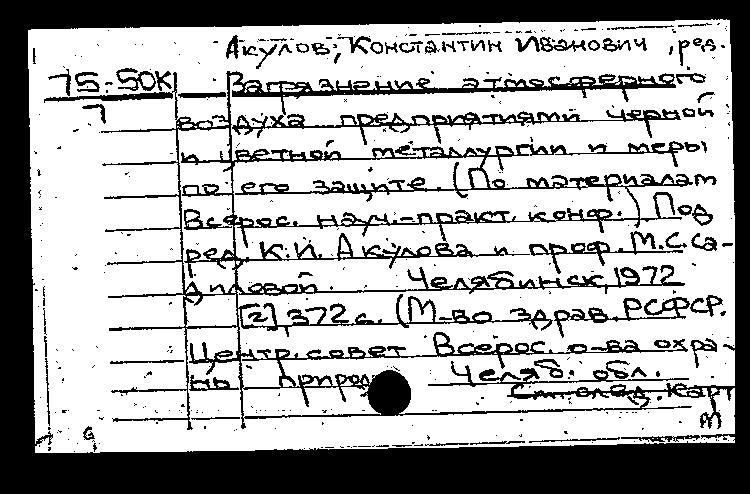 Акулов, Константин Иванович, ред.
75-50К Загрязнение атмосферного
7 воздуха предприятиями черной
и цветной металлургии и меры
по его защите. (По материалам
Всерос. науч.-практ. конф.) Под
ред. К.И. Акулова и проф. М.С. Са-
диловой. Челябинск, 1972
[2], 372 с. (М-во здрав. РСФСР.
Центр. совет Всерос. о-ва охра-
ны природы Челяб. обл.
См. след. карт
М